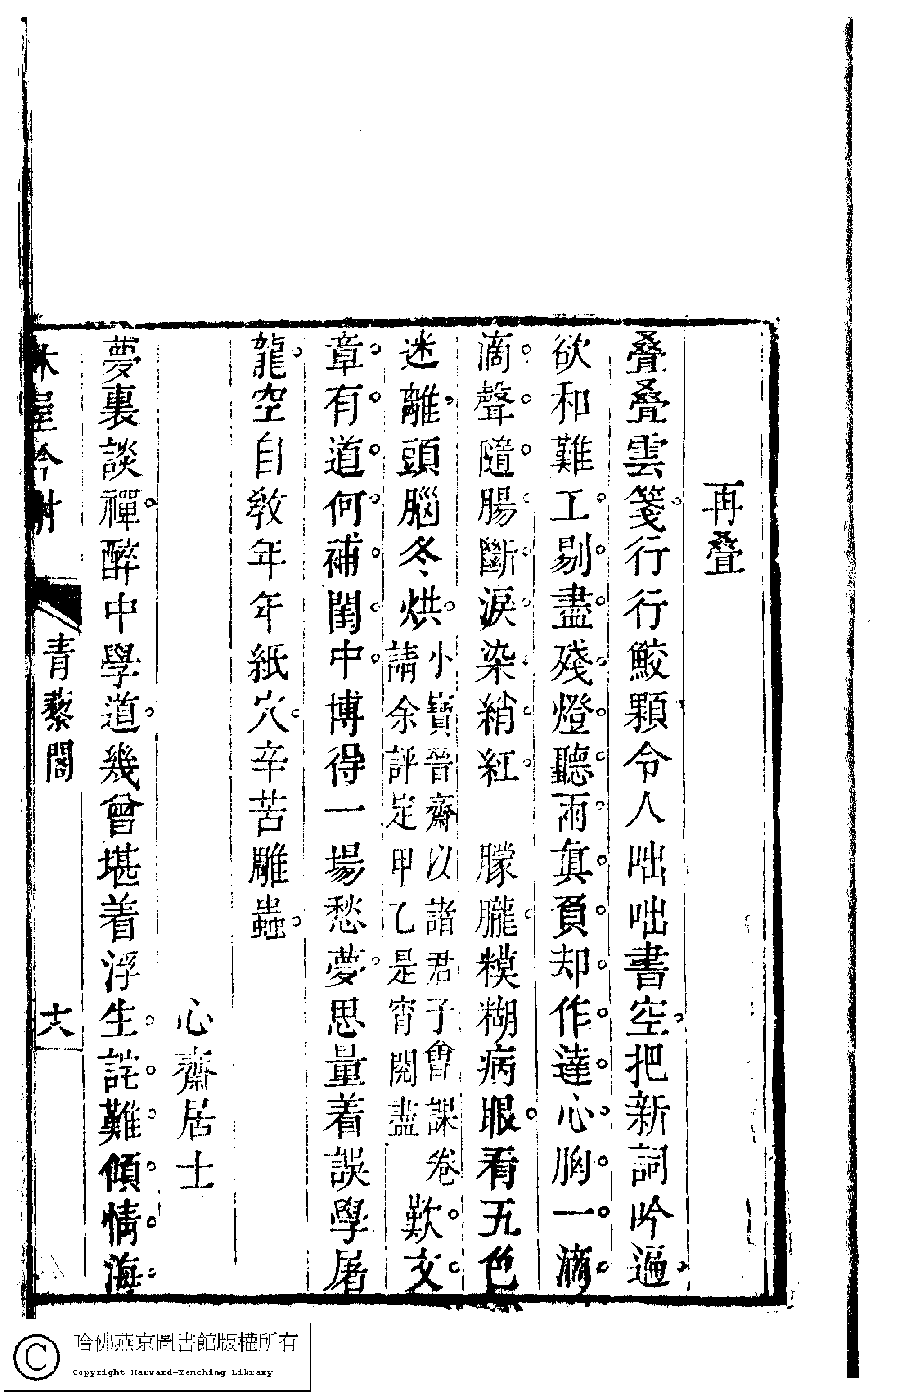 再疊
疊疊雲箋行行鮫顆令人咄咄書空把新詞吟遍
欲和難工剔盡殘燈聽雨真負却作達心胸一滴
滴聲隨腸斷淚染綃紅　朦朧糢糊病眼看五色
迷離頭腦冬烘小寶晉齋以諸君子會課卷請余評定甲乙是宵閱盡歎文
章有道何補閨中博得一場愁夢思量着誤學屠
龍空自教年年紙穴辛苦雕蟲
心齋居士
夢裏談禪醉中學道幾曾堪着浮生詫難傾情海
青藜閣
十六
哈佛燕京圖書館版權所有
Copyright Harvard-Yenching Library